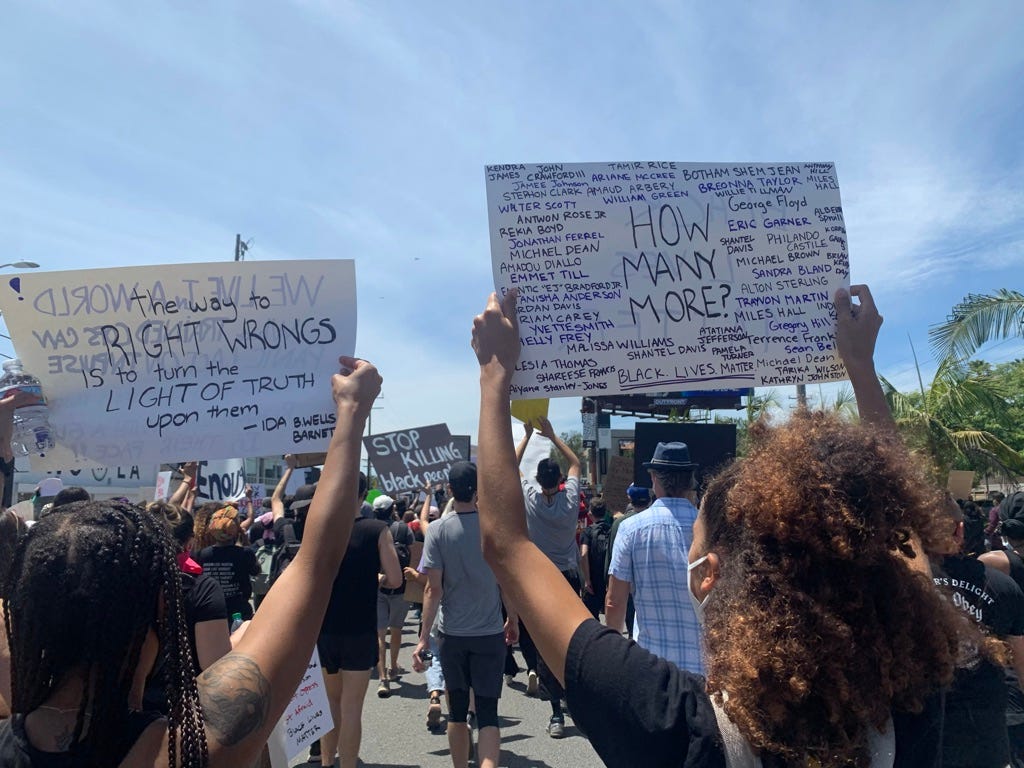 the way to
RIGHT WRONGS
IS to turn the
LIGHT OF TRUTH
upon them
— IDA B. WELLS
BARNETT
KENDRA JOHN TAMIR RICE BOTHAM SHEM JEAN ANTHONY HILL
JAMES CRAWFORD III ARIANE MCCREE BREONNA TAYLOR MILES HALL
JAMEE Johnson AMAUD ARBERY WILLIE TILLMAN
STEPHON CLARK WILLIAM GREEN George Floyd
WALTER SCOTT
ANTWON ROSE JR ERIC GARNER
REKIA BOYD
JONATHAN FERREL SHANTEL DAVIS PHILANDO CASTILE
MICHAEL DEAN MICHAEL BROWN
AMADOU DIALLO SANDRA BLAND
EMMET TILL ALTON STERLING
"EJ" BRADFORD JR TRAYVON MARTIN
TANISHA ANDERSON MILES HALL
DAVIS Gregory Hill
CAREY Terrence Frank
YVETTE SMITH Sean Bel
FREY ATATIANA JEFFERSON
MALISSA WILLIAMS PAMELA TURNER
SHANTEL DAVIS Michael Dean
THOMAS TARIKA WILSON
SHAREESE FRANCIS KATHRYN JOHNSTON
Aiyana Stanley-Jones
HOW
MANY
MORE?
BLACK. LIVES. MATTER
STOP
KILLING
black people
ENOUGH
LA
OUTFRONT
Black Lives
MATTER
'S DELIGHT
Obey